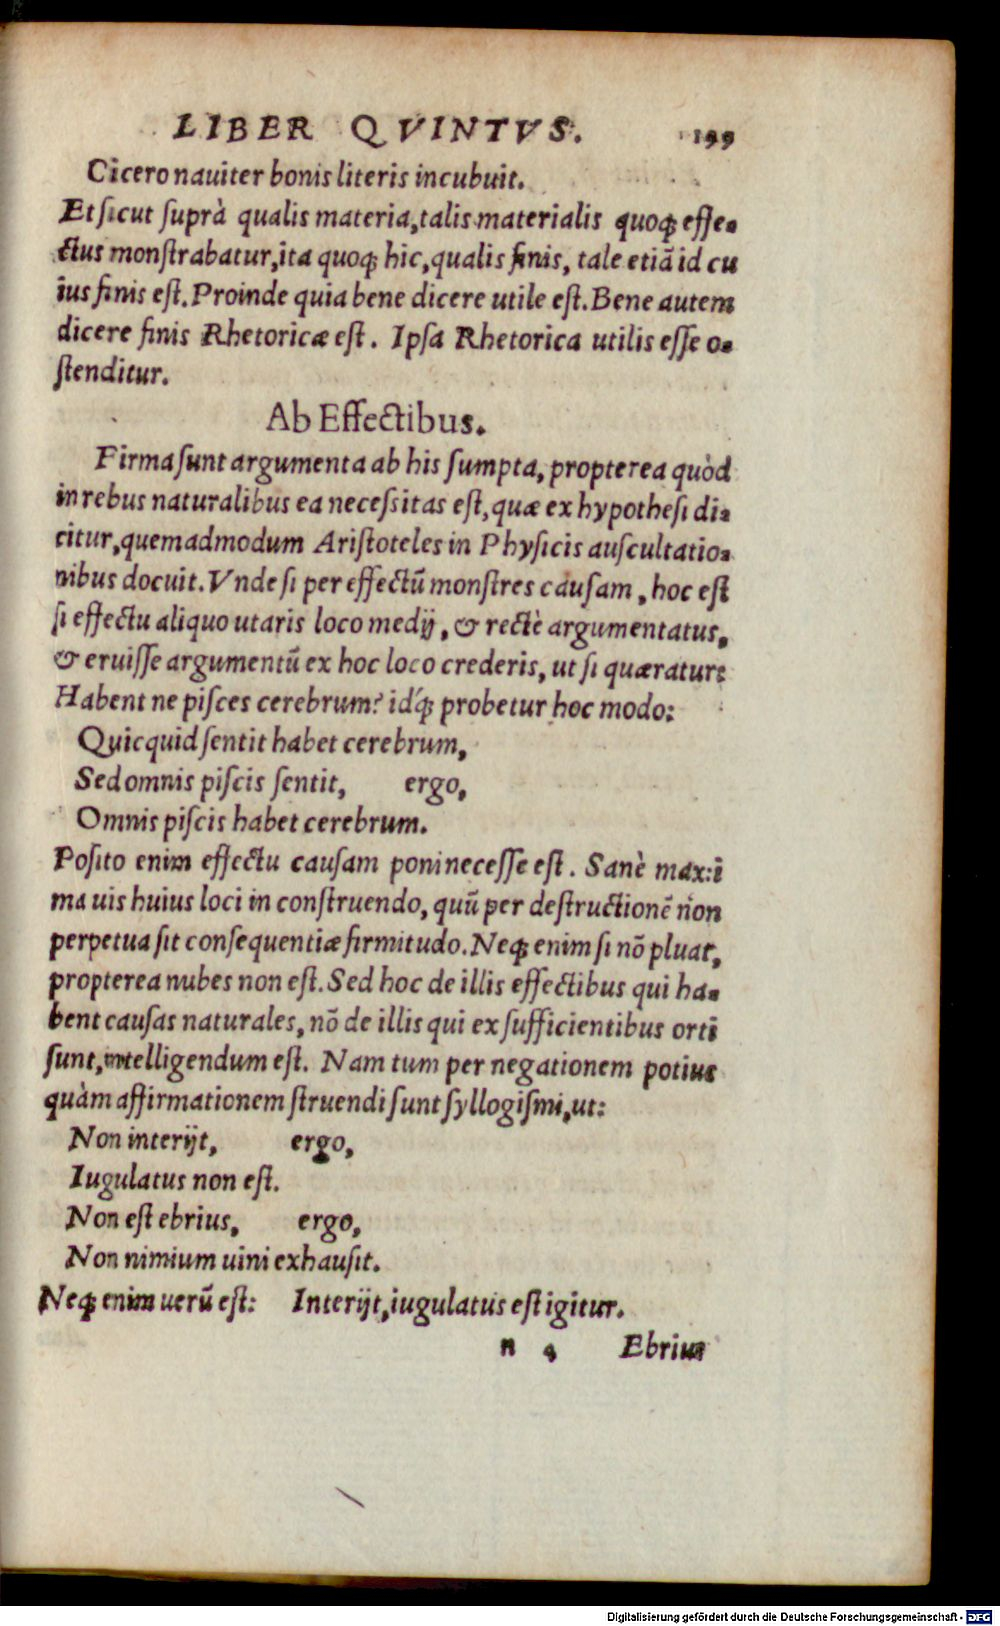 LIBER QVINTVS. 199
Cicero nauiter bonis literis incubuit.
Et ſicut ſuprà qualis materia, talis materialis quoq; effe-
ctus monſtrabatur, ita quoq; hic, qualis finis, tale etiā id cu
ius finis eſt. Proinde quia bene dicere utile eſt. Bene autem
dicere finis Rhetoricæ eſt. Ipſa Rhetorica utilis eſſe o-
ſtenditur.
Ab Effectibus.
Firma ſunt argumenta ab his ſumpta, propterea quòd
in rebus naturalibus ea neceſsitas eſt, quæ ex hypotheſi di-
citur, quemadmodum Ariſtoteles in Phyſicis auſcultatio-
nibus docuit. Vnde ſi per effectū monſtres cauſam, hoc eſt
ſi effectu aliquo utaris loco medij, & rectè argumentatus,
& eruiſſe argumentū ex hoc loco crederis, ut ſi quæratur:
Habent ne piſces cerebrum? idq́; probetur hoc modo:
Quicquid ſentit habet cerebrum,
Sed omnis piſcis ſentit, ergo,
Omnis piſcis habet cerebrum.
Poſito enim effectu cauſam poni neceſſe eſt. Sanè max:i
ma uis huius loci in conſtruendo, quū per deſtructionē non
perpetua ſit conſequentiæ firmitudo. Neq; enim ſi nō pluat,
propterea nubes non eſt. Sed hoc de illis effectibus qui ha-
bent cauſas naturales, nō de illis qui ex ſufficientibus orti
ſunt, intelligendum eſt. Nam tum per negationem potius
quàm affirmationem ſtruendi ſunt ſyllogiſmi, ut:
Non interijt, ergo,
Iugulatus non eſt.
Non eſt ebrius, ergo,
Non nimium uini exhauſit.
Neq; enim uerū eſt: Interijt, iugulatus eſt igitur.
n 4 Ebrius
Digitalisierung gefördert durch die Deutsche Forschungsgemeinschaft - DFG